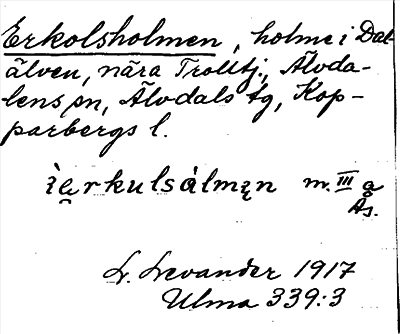 Erkolsholmen, holme i Dal-
älven, nära Trolltj., Älvda-
lens sn, Älvdals tg, Kop-
parbergs l.
ìe̯rkulsàlmęn m. III a
Ås.
L. Levander 1917
Ulma 339:3